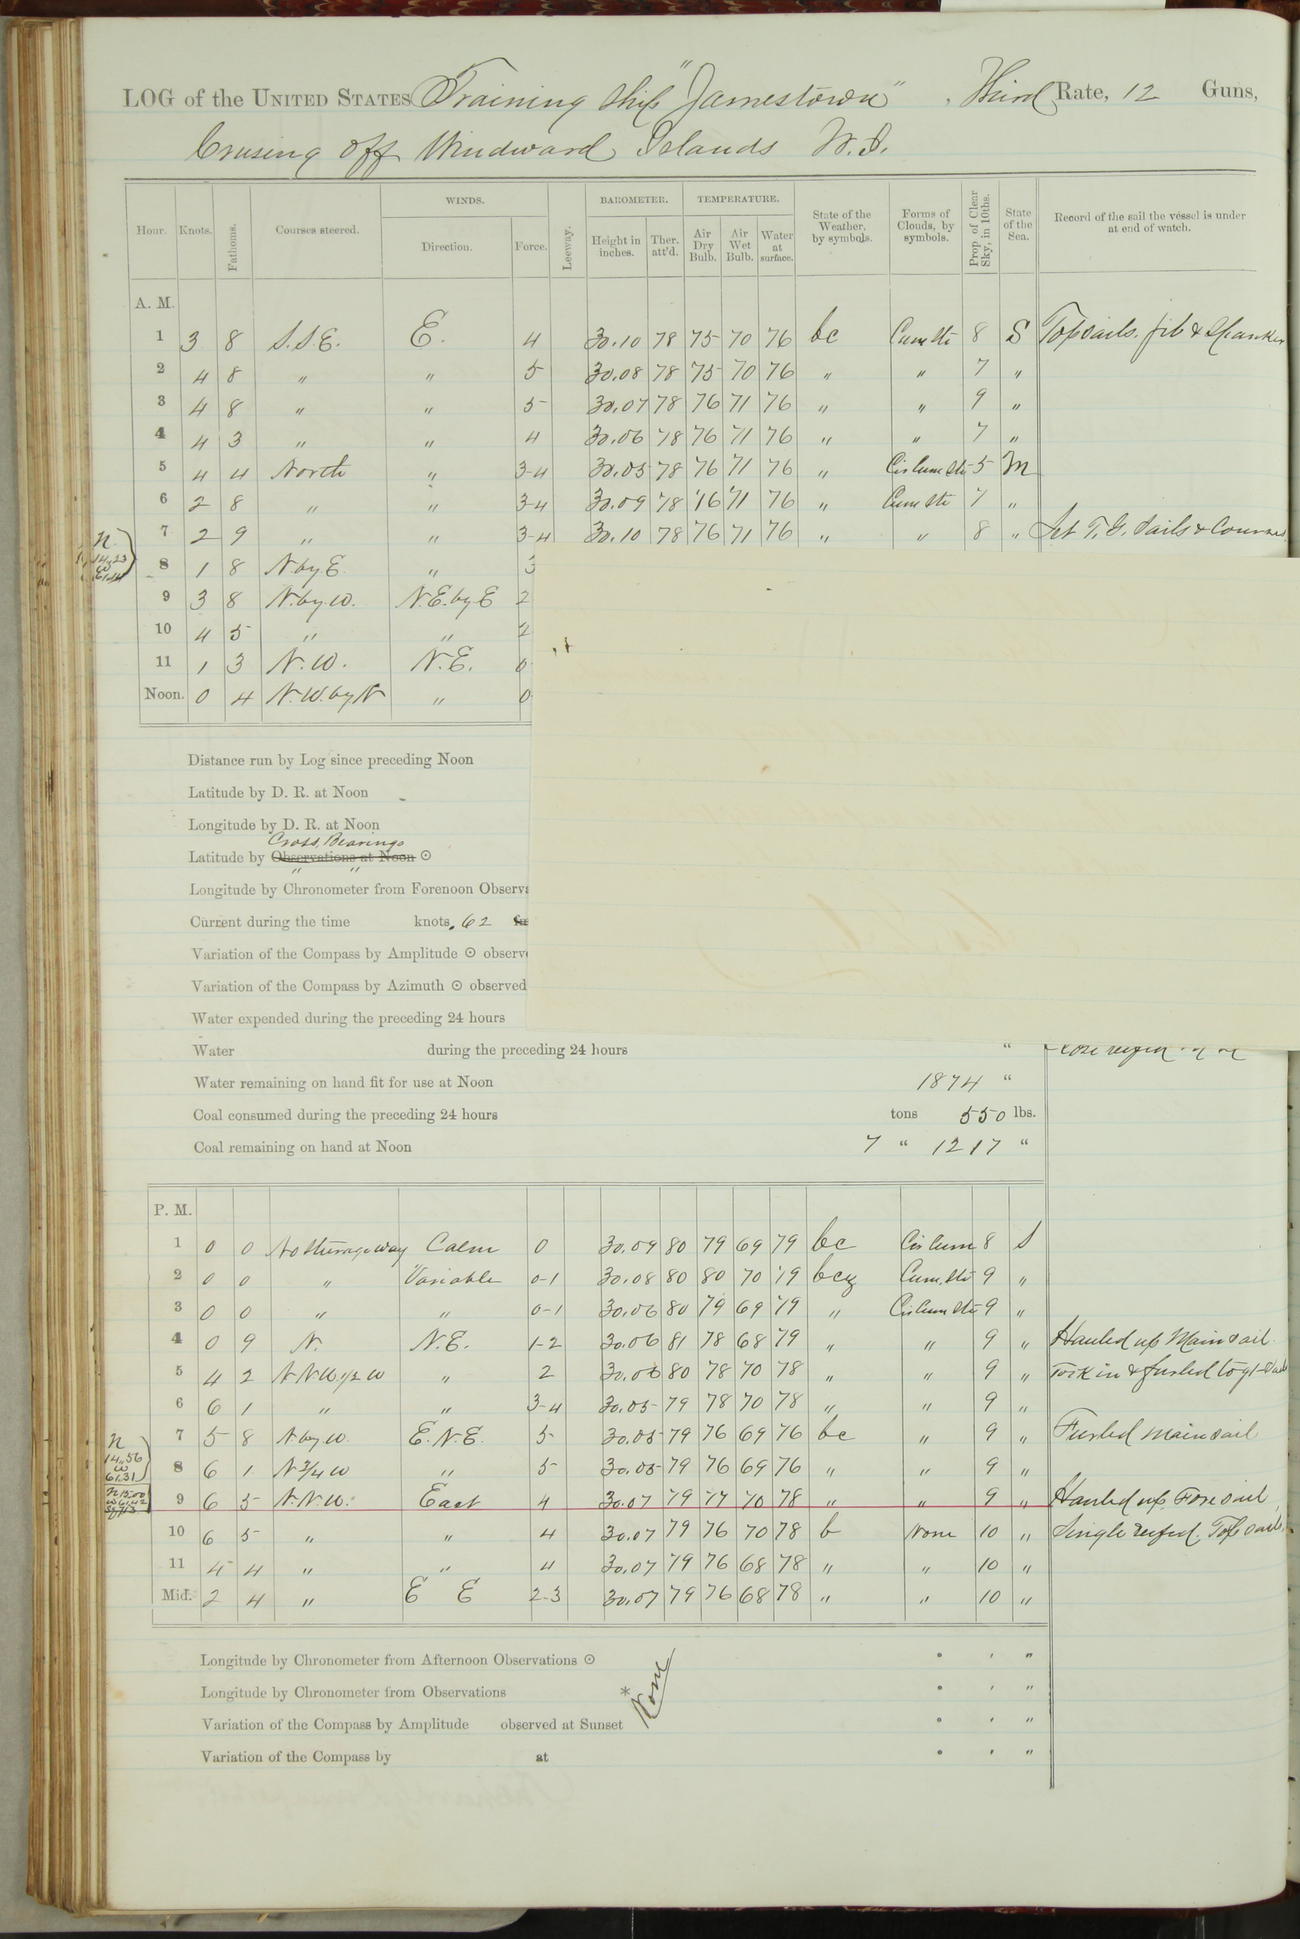 LOG of the UNITED STATES Training Ship "Jamestown", Third Rate, 12 Guns,
Crusing off Windward Islands W.I.
Hour. Knots. Fathoms. Courses steered. WINDS. Direction. Force. Leeway. BAROMETER. Height in inches. Ther. att'd. TEMPERATURE. Air Dry Bulb. Air Wet Bulb. Water at surface. State of the Weather, by symbols. Forms of Clouds, by symbols. Prop. of Clear Sky, in 10ths. State of the Sea. Record of the sail the vessel is under at end of watch.
A. M.
1 3 8 S.S.E. E. 4 30.10 78 75 70 76 bc Cum Sti 8 S Topsails. jib & Spanker
2 4 8 " " 5 30.08 78 75 70 76 " " 7 "
3 4 8 " " 5 30.07 78 76 71 76 " " 9 "
4 4 3 " " 4 30.06 78 76 71 76 " " 7 "
5 4 4 North " 3-4 30.05 78 76 71 76 " Cis Cum Sti 5 M
6 2 8 " " 3-4 30.09 78 76 71 76 " Cum Sti 7 "
7 2 9 " " 3-4 30.10 78 76 71 76 " " 8 " Set T. G. Sails & Courses
8 1 8 N by E " 3
9 3 8 N. by W. N.E. by E 2
10 4 5 " " 2
11 1 3 N. W. N. E. 0
Noon. 0 4 N. W. by N " 0
Distance run by Log since preceding Noon
Latitude by D. R. at Noon
Longitude by D. R. at Noon
Cross Bearings
Latitude by Observations at Noon ⊙
" "
Longitude by Chronometer from Forenoon Observa
Current during the time knots .62
Variation of the Compass by Amplitude ⊙ observe
Variation of the Compass by Azimuth ⊙ observed
Water expended during the preceding 24 hours
Water during the preceding 24 hours "
Water remaining on hand fit for use at Noon 1874 "
Coal consumed during the preceding 24 hours tons 550 lbs.
Coal remaining on hand at Noon 7 " 1217 "
P. M.
1 0 0 No Sterrageway Calm 0 30.09 80 79 69 79 bc Cis Cum 8 S
2 0 0 " Variable 0-1 30.08 80 80 70 79 bcz Cum. Sti 9 "
3 0 0 " " 0-1 30.06 80 79 69 79 " Cis Cum Sti 9 "
4 0 9 N. N.E. 1-2 30.06 81 78 68 79 " " 9 " Hauled up Main sail
5 4 2 N N W 1/2 W " 2 30.06 80 78 70 78 " " 9 " Took in & furled to'gt sails
6 6 1 " " 3-4 30.05 79 78 70 78 " " 9 "
N
14.56
W
61.31
7 5 8 N by W. E. N. E. 5 30.05 79 76 69 76 bc " 9 " Furled mainsail
8 6 1 N 3/4 W " 5 30.05 79 76 69 76 " " 9 "
9 6 5 N. N. W. East 4 30.07 79 77 70 78 " " 9 " Hauled up. Foresail,
10 6 5 " " 4 30.07 79 76 70 78 b None 10 " Single reefed. Topsails.
11 4 4 " " 4 30.07 79 76 68 78 " " 10 "
Mid. 2 4 " E E 2-3 30.07 79 76 68 78 " " 10 "
Longitude by Chronometer from Afternoon Observations ⊙ ° ' "
Longitude by Chronometer from Observations * None ° ' "
Variation of the Compass by Amplitude observed at Sunset ° ' "
Variation of the Compass by at ° ' "